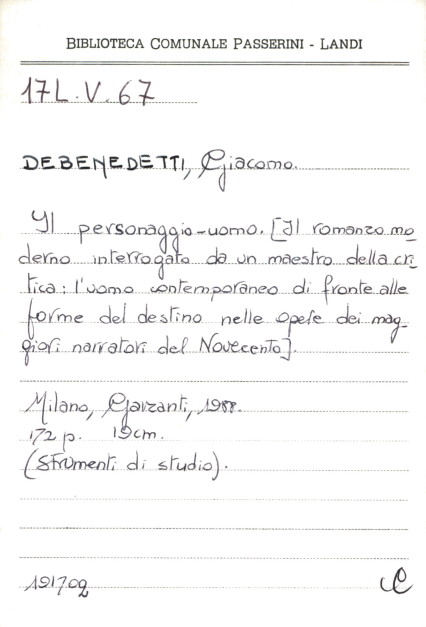 BIBLIOTECA COMUNALE PASSERINI - LANDI
17L.V.67
DEBENEDETTI, Giacomo.
Il personaggio-uomo. [Il romanzo mo-
derno interrogato da un maestro della cri-
tica: l'uomo contemporaneo di fronte alle
forme del destino nelle opere dei mag-
giori narratori del Novecento].
Milano, Garzanti, 1988.
172 p. 19cm.
(Strumenti di studio).
191702